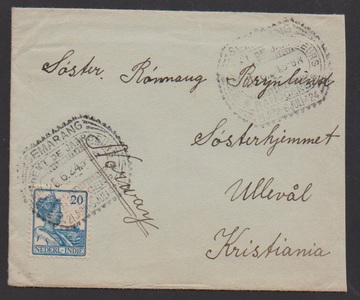 Söster. Rónnaug Brynlund
Sösterhjemmet
Ullevål
Kristiania
Norway
SEMARANG
20
NEDERL-INDIË